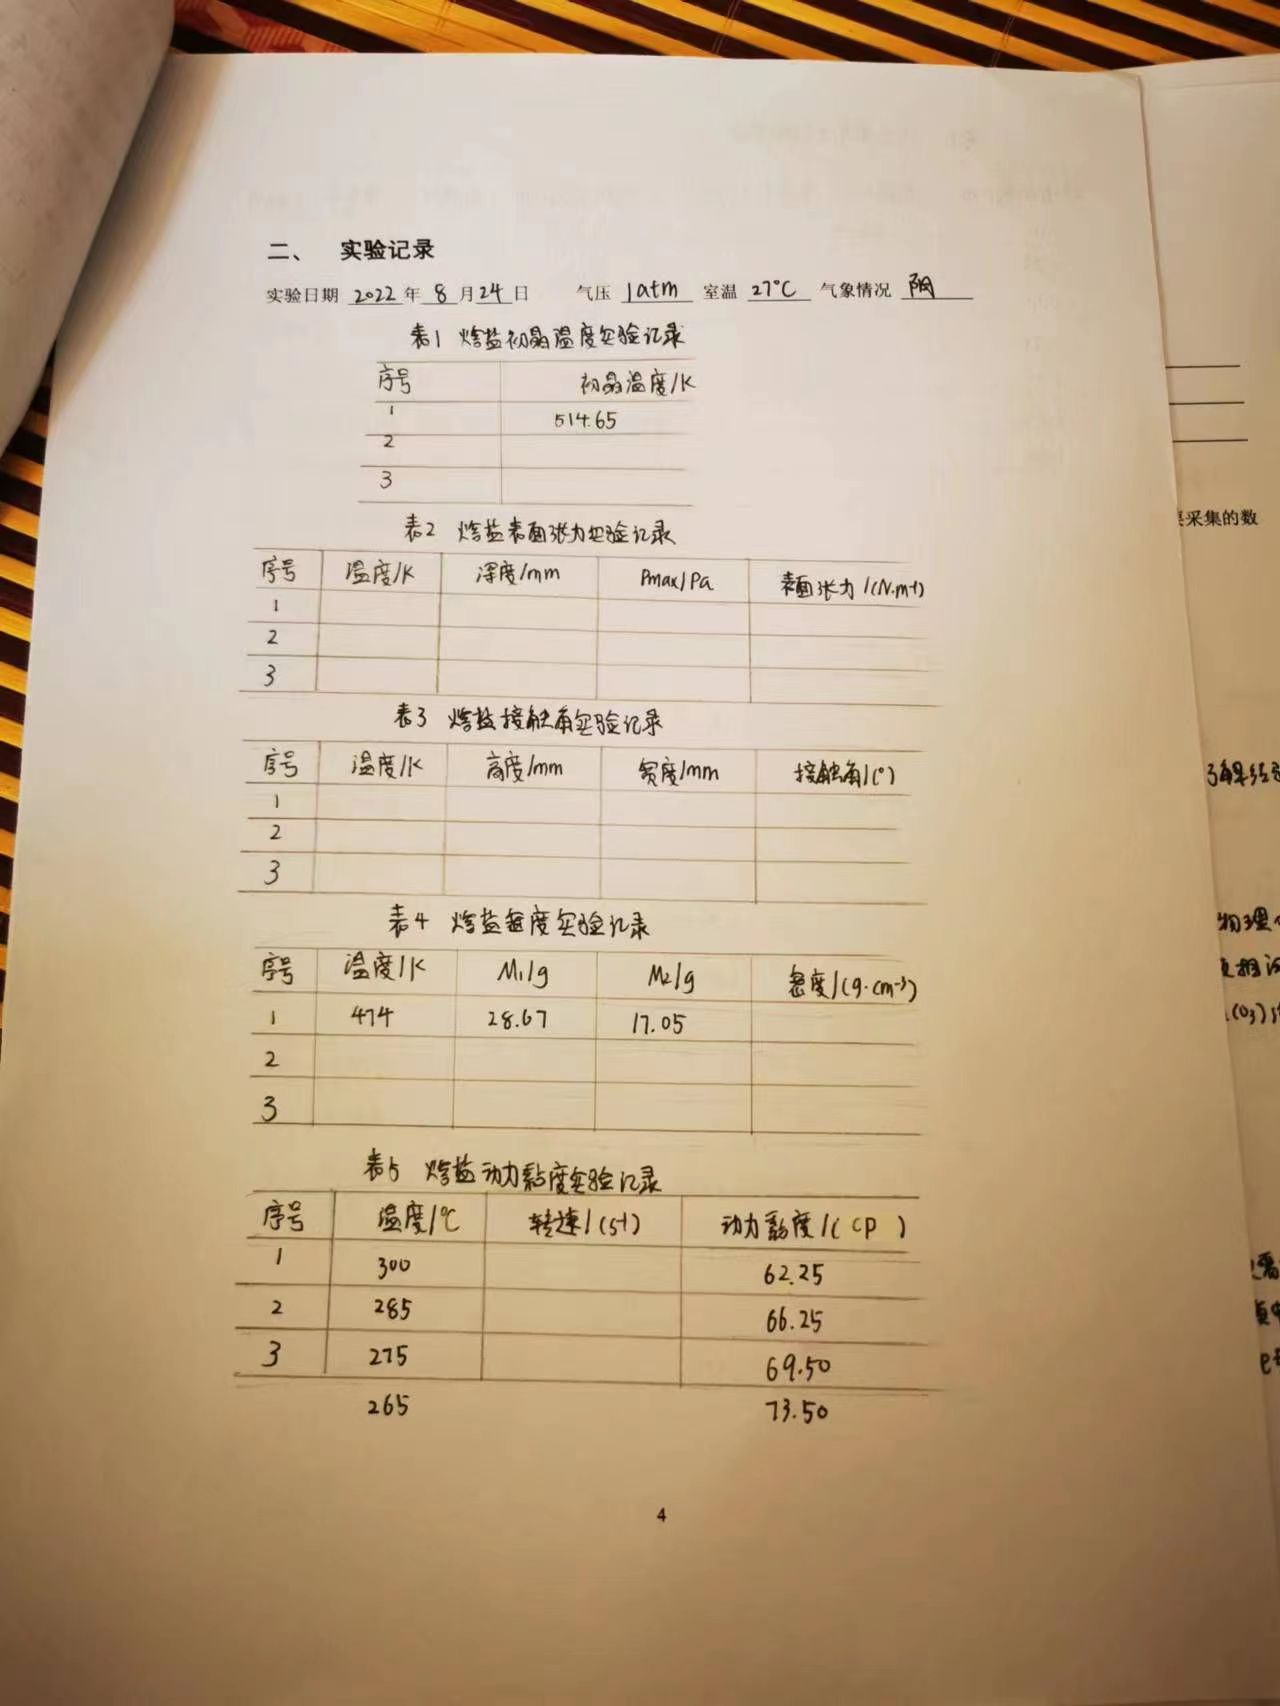 二、 实验记录
实验日期 2022 年 8 月 24 日 气压 1atm 室温 27°C 气象情况 阴
表1 熔盐初晶温度实验记录
序号 初晶温度/K
1 514.65
2
3
表2 熔盐表面张力实验记录
序号 温度/K 深度/mm Pmax/Pa 表面张力/(N·m-1)
1
2
3
表3 熔盐接触角实验记录
序号 温度/K 高度/mm 宽度/mm 接触角/(°)
1
2
3
表4 熔盐密度实验记录
序号 温度/K M1/g M2/g 密度/(g·cm-3)
1 474 28.67 17.05
2
3
表5 熔盐动力黏度实验记录
序号 温度/°C 转速/(s-1) 动力黏度/(CP)
1 300 62.25
2 285 66.25
3 275 69.50
265 73.50
4
采集的数
了解
物理